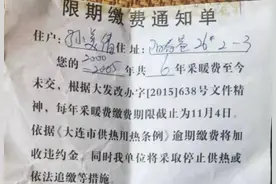 限期缴费通知单
住户: 住址: 26# 2-3
您的2000-2005年共6年采暖费至今
未交,根据大发改办字[2015]638号文件精
神,每年采暖费缴费期限截止为11月4日。
依据《大连市供热用热条例》逾期缴费将加
收违约金,同时我单位将采取停止供热或
依法追缴等措施。